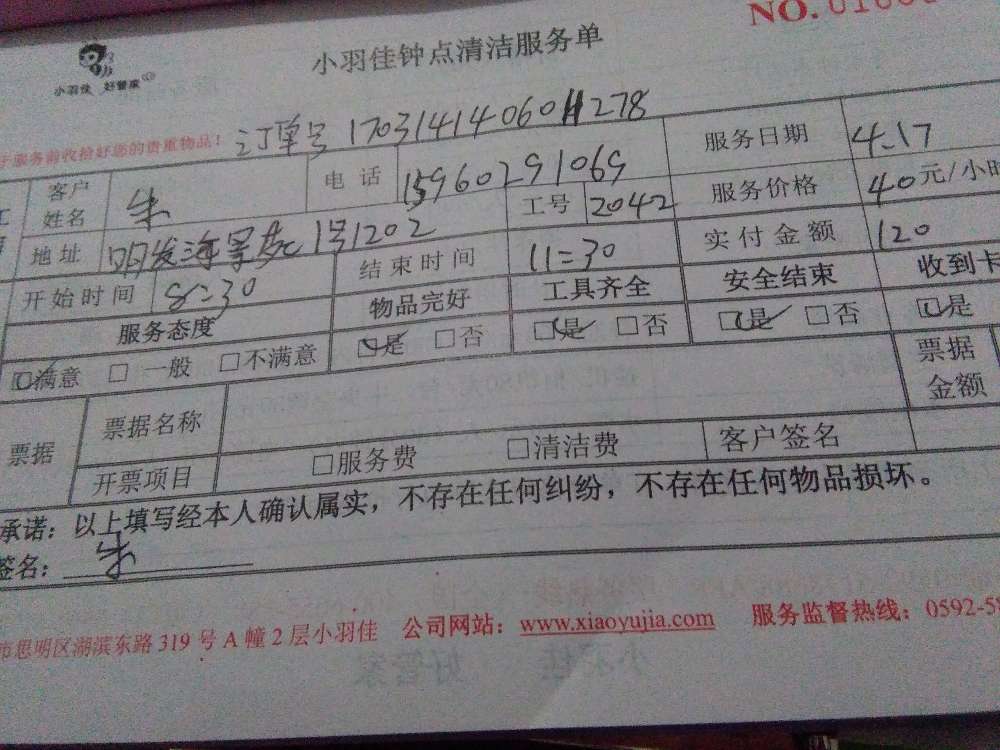 小羽佳 好管家
小羽佳钟点清洁服务单
NO.
服务前收拾好您的贵重物品! 订单号 1703141406011278
客户姓名 朱 电话 15960291069 服务日期 4.17
地址 明发海景苑1号1202 工号 2042 服务价格 40元/小时
开始时间 8:30 结束时间 11:30 实付金额 120
服务态度 物品完好 工具齐全 安全结束 收到卡
☑满意 □一般 □不满意 ☑是 □否 ☑是 □否 ☑是 □否 ☑是
票据 票据名称 票据金额
开票项目 □服务费 □清洁费 客户签名
承诺：以上填写经本人确认属实，不存在任何纠纷，不存在任何物品损坏。
签名：朱
市思明区湖滨东路319号A幢2层小羽佳 公司网站：www.xiaoyujia.com 服务监督热线：0592-5